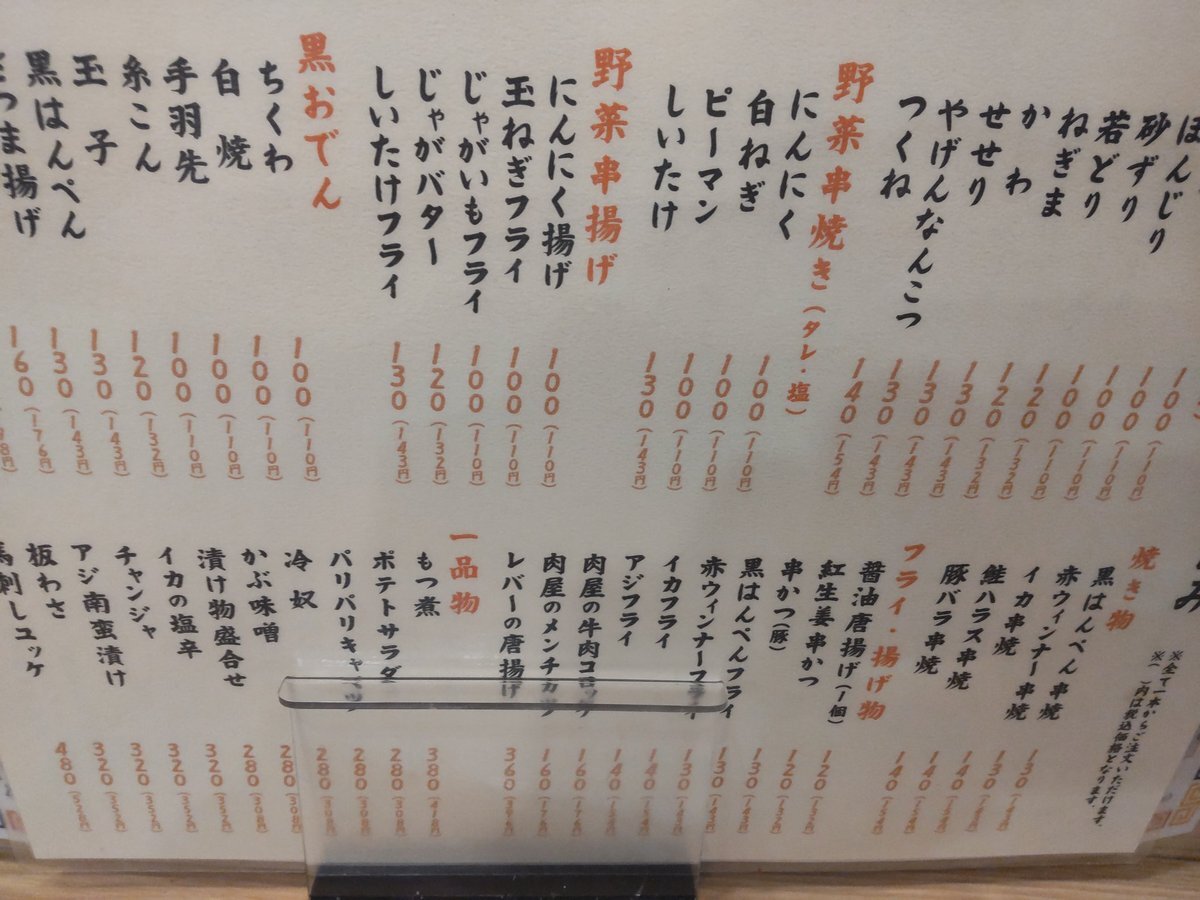 ほんじり
砂ずり
若どり
ねぎま
かわ
せせり
やげんなんこつ
つくね
100(110円)
100(110円)
100(110円)
100(110円)
120(132円)
120(132円)
130(143円)
130(143円)
130(143円)
140(154円)
野菜串焼き(タレ・塩)
にんにく 100(110円)
白ねぎ 100(110円)
ピーマン 100(110円)
しいたけ 130(143円)
野菜串揚げ
にんにく揚げ 100(110円)
玉ねぎフライ 100(110円)
じゃがいもフライ 100(110円)
じゃがバター 120(132円)
しいたけフライ 130(143円)
黒おでん
ちくわ
白焼
手羽先
糸こん
玉子
黒はんぺん
つま揚げ
100(110円)
100(110円)
100(110円)
100(110円)
120(132円)
130(143円)
130(143円)
160(176円)
※全て一本からご注文いただけます。
※( )内は税込価格となります。
焼き物
黒はんぺん串焼
赤ウィンナー串焼
イカ串焼
鮭ハラス串焼
豚バラ串焼
130
130
140
140
140
フライ・揚げ物
醤油唐揚げ(1個)
紅生姜串かつ
串かつ(豚)
黒はんぺんフライ
赤ウィンナーフライ
イカフライ
アジフライ
肉屋の牛肉コロッケ
肉屋のメンチカツ
レバーの唐揚げ
120
120
130
130
140
140
160
160
360
一品物
もつ煮 380(418円)
ポテトサラダ 280(308円)
パリパリキャベツ 280(308円)
冷奴 280(308円)
かぶ味噌 280(308円)
漬け物盛合せ 320(352円)
イカの塩辛 320(352円)
チャンジャ 320(352円)
アジ南蛮漬け 320(352円)
板わさ
馬刺しユッケ
280(308円)
480(528円)